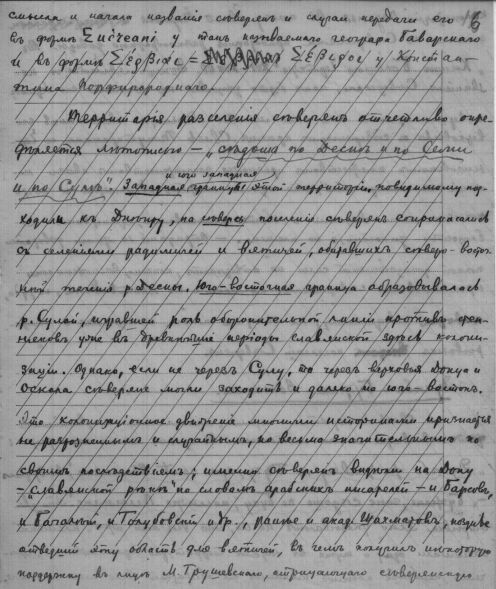 16
смысла и начала названія сѣверянъ и случаи передачи его
въ формѣ у такъ называемаго географа Баварскаго
и въ формѣ Σέρβιοι = Σέβεροι у Констан-
тина Порфиророднаго.
Территорія разселенія сѣверянъ отчетливо опре-
дѣляется лѣтописью – „сѣдоша по Деснѣ и по Семи
и по Сулѣ“. Западная граница этой территоріи, повидимому под-
и юго западная
ходила къ Днѣпру, на сѣверѣ поселенія сѣверянъ соприкасались
съ селеніями радимичей и вятичей, обитавшихъ сѣверо-восточ-
нѣй теченія р. Десны. Юго-восточная граница образовывалась
р. Сулой, игравшей роль оборонительной линіи противъ степ-
няковъ уже въ древнѣйшіе періоды славянской здѣсь колони-
заціи. Однако, если не черезъ Сулу, то черезъ верховья Донца и
Оскола сѣверяне могли заходить и далеко на юго-востокъ.
Это колонизаціонное движеніе многими историками признается
не разрозненнымъ и случайнымъ, но весьма значительнымъ по
своимъ послѣдствіямъ; именно сѣверянъ видятъ на Дону
– „славянской рѣкѣ“ по словамъ арабскихъ писателей – и Барсовъ,
и Багалѣй, и Голубовскій и др., раньше и акад. Шахматовъ, позднѣе
отведшій эту область для вятичей, въ чемъ получилъ некоторую
поддержку въ лицѣ М. Грушевскаго, отрицающаго сѣверянскую